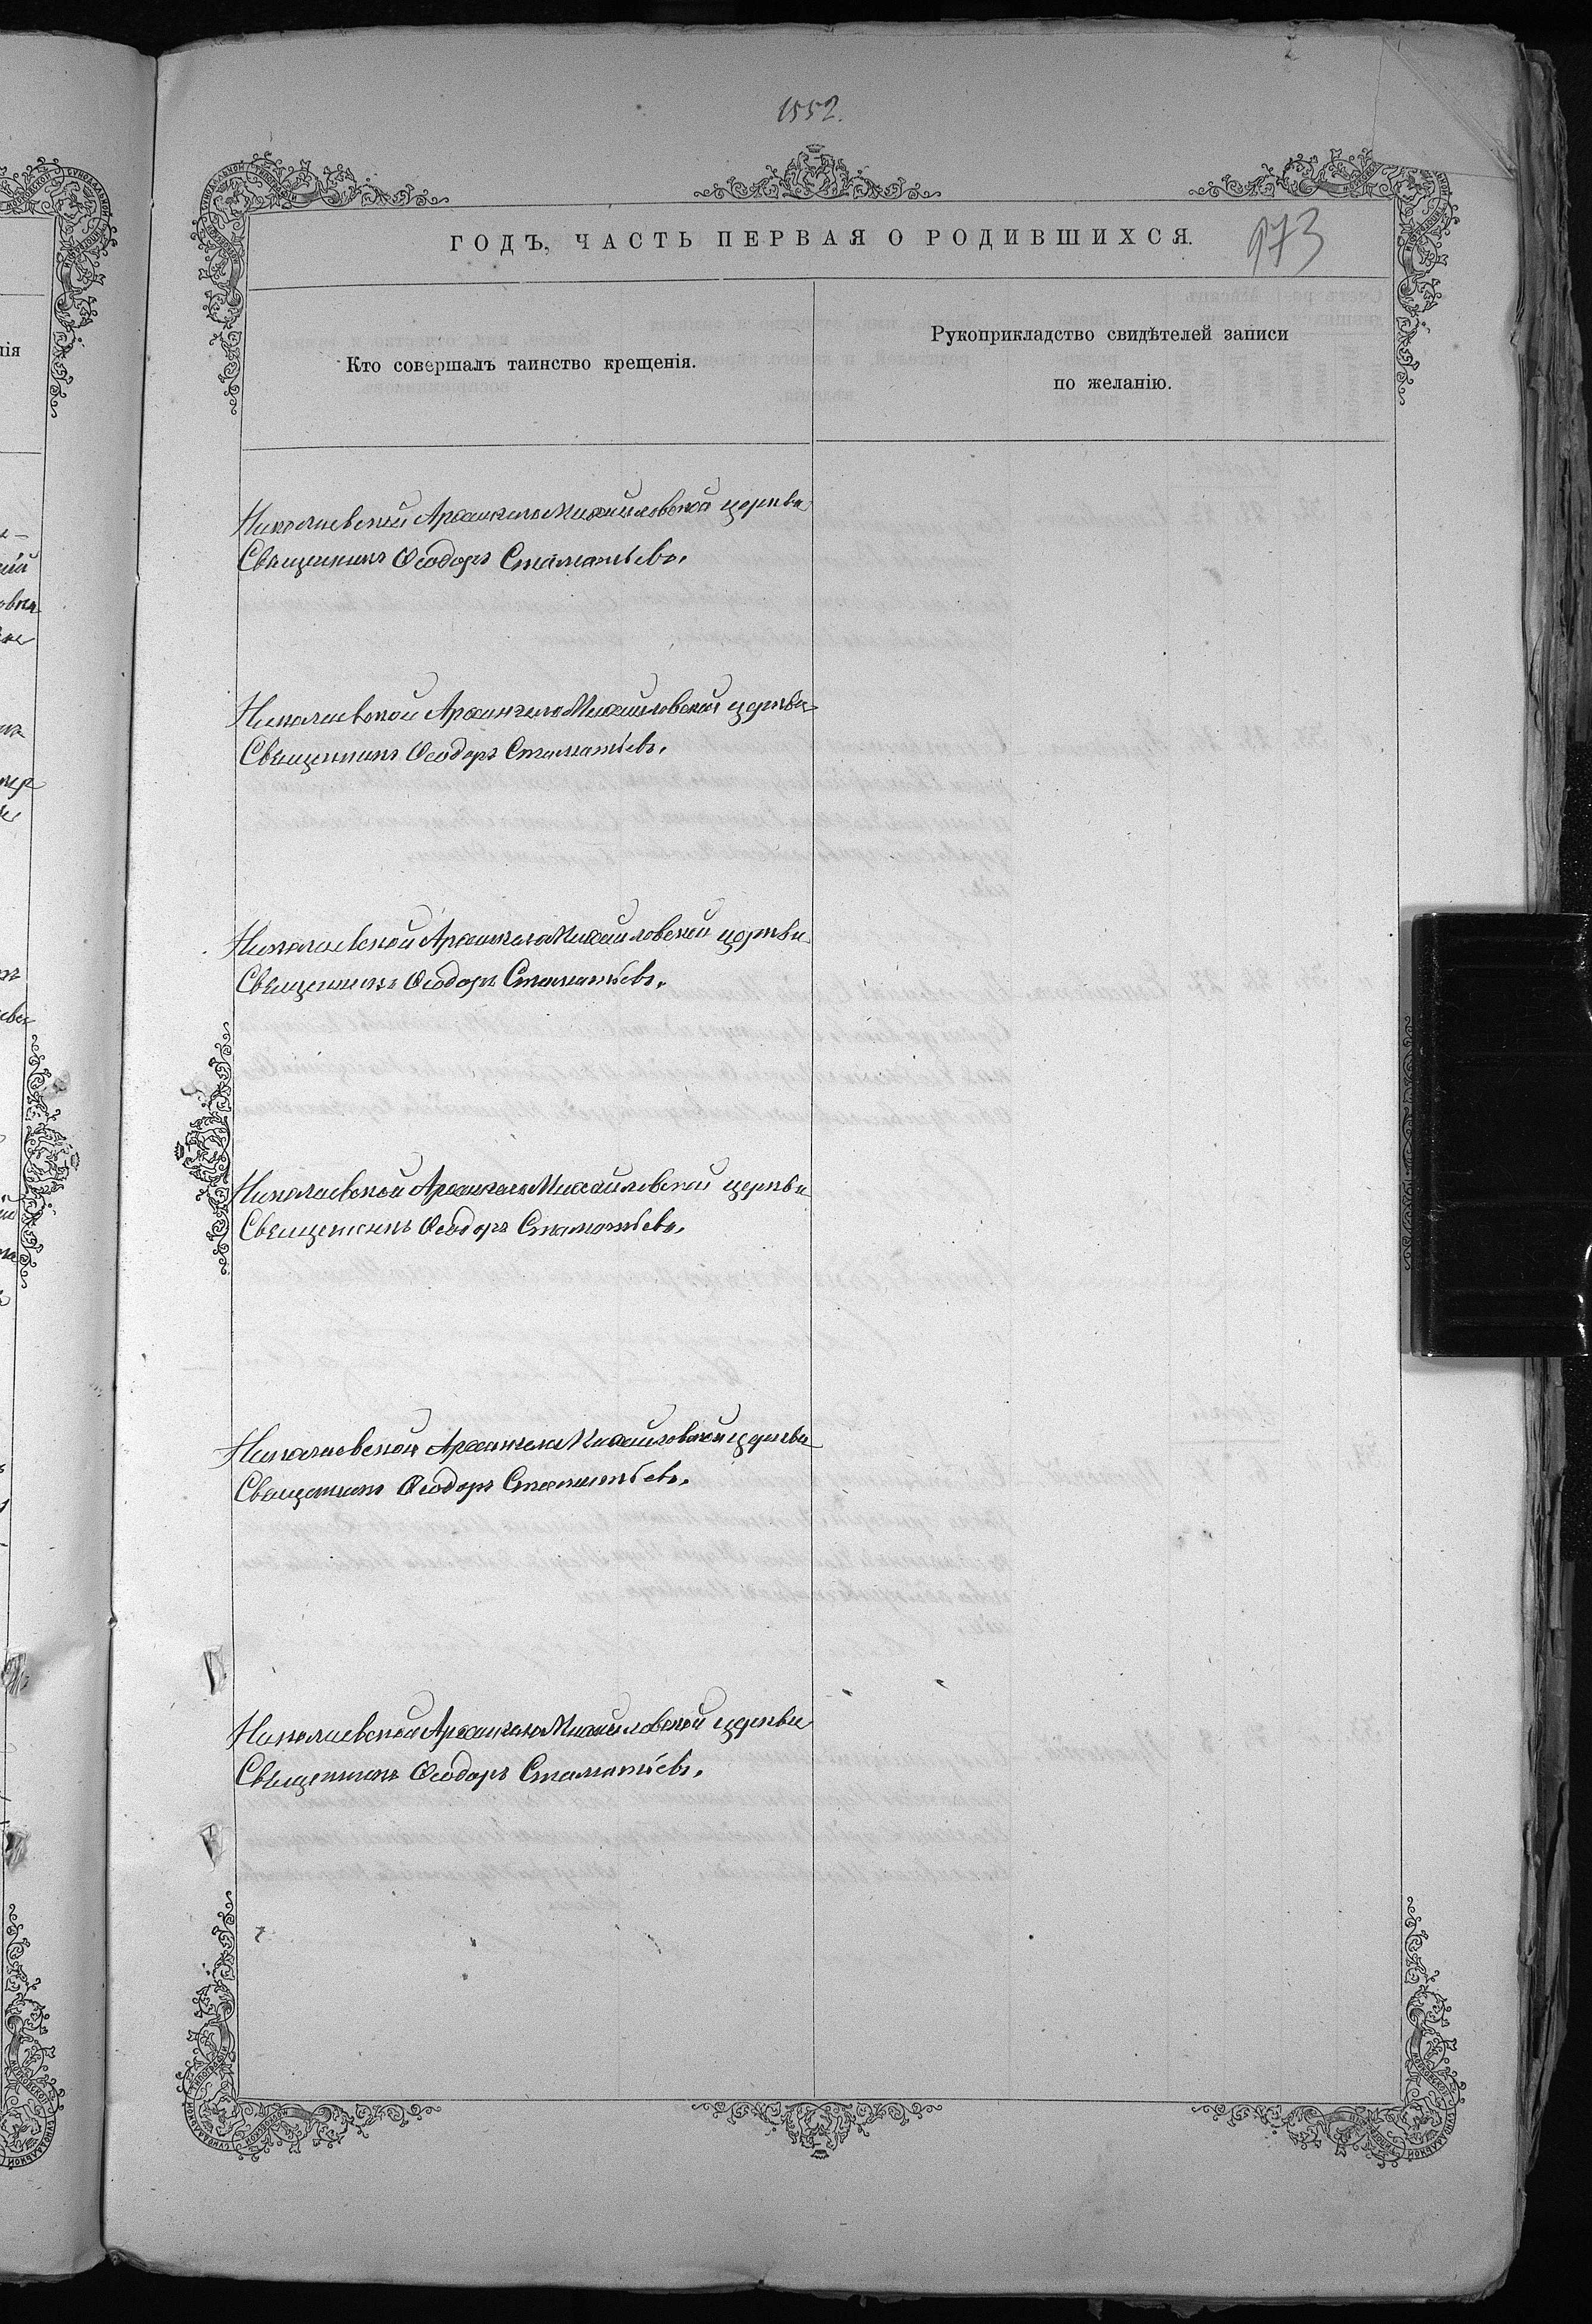 1552.
ГОДЪ, ЧАСТЬ ПЕРВАЯ О РОДИВШИХСЯ.
973
Кто совершалъ таинство крещенія.
Рукоприкладство свидѣтелей записи
по желанію.
Николаевской Архангело Михайловской церкви
Священникъ Ѳеодоръ Стаматьевъ.
Николаевской Архангело Михайловской церкви
Священникъ Ѳеодоръ Стаматьевъ.
Николаевской Архангело Михайловской церкви
Священникъ Ѳеодоръ Стаматьевъ.
Николаевской Архангело Михайловской церкви
Священникъ Ѳеодоръ Стаматьевъ.
Николаевской Архангело Михайловской церкви
Священникъ Ѳеодоръ Стаматьевъ.
Николаевской Архангело Михайловской церкви
Священникъ Ѳеодоръ Стаматьевъ.